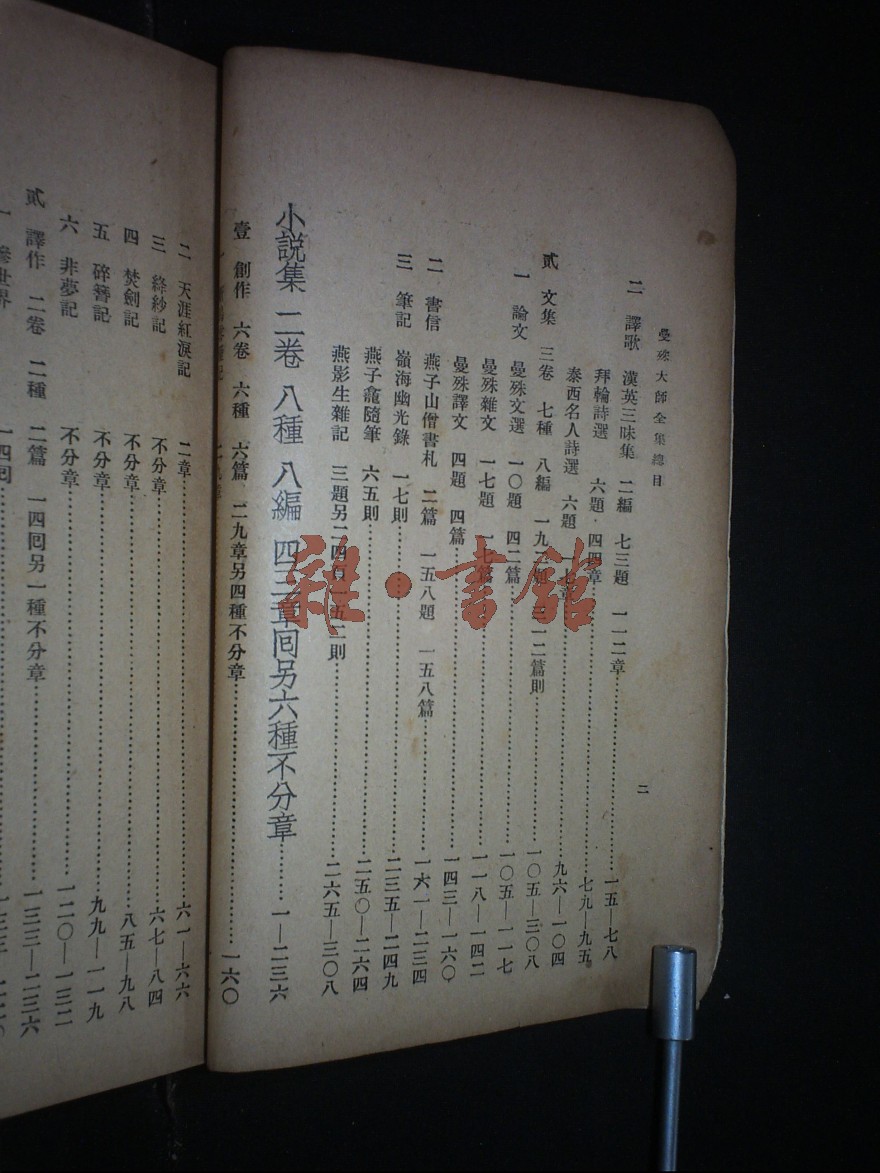 曼殊大師全集總目
二
二 譯歌 漢英三昧集 二編 七三題 一一二章……一五—七八
拜輪詩選 六題 四四章……七九—九五
泰西名人詩選 六題 一七章……九六—一〇四
貳 文集 三卷 七種 八編 一九二題 三一二篇則……一〇五—三〇八
一 論文 曼殊文選 一〇題 四二篇……一〇五—一一七
曼殊雜文 一七題 一七篇……一一八—一四二
曼殊譯文 四題 四篇……一四三—一六〇
二 書信 燕子山僧書札 二篇 一五八題 一五八篇……一六一—二三四
三 筆記 嶺海幽光錄 一七則……二三五—二四九
燕子龕隨筆 六五則……二五〇—二六四
燕影生雜記 三題另一四頁一五二則……二六五—三〇八
小説集 二卷 八種 八編 四三章囘另六種不分章……一—二三六
壹 創作 六卷 六種 六篇 二九章另四種不分章……一六〇
二 天涯紅淚記 二章……六一—六六
三 絳紗記 不分章……六七—八四
四 焚劍記 不分章……八五—九八
五 碎簪記 不分章……九九—一一九
六 非夢記 不分章……一二〇—一三二
貳 譯作 二卷 二種 二篇 一四囘另一種不分章……一三三—二三六
一 慘世界 一四囘
雜·書館